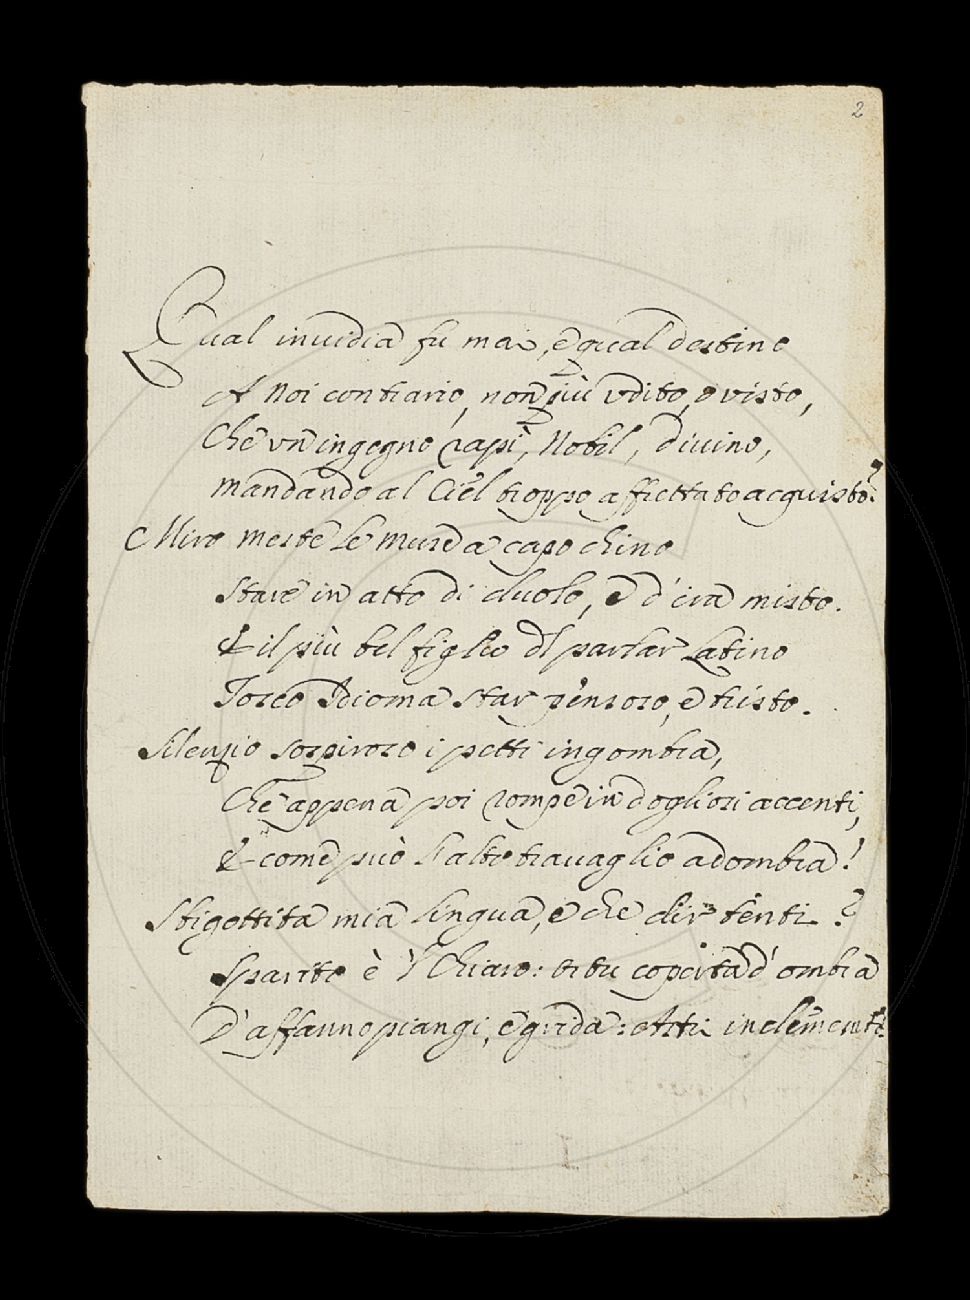 2
Qual inuidia fu mai, e qual destino
A Noi contrario, non più vdito, o visto,
Che vn ingegno rapì, Nobil, diuino,
mandando al Ciel troppo affrettato acquisto?
Miro meste le muse a capo chino
Stare in atto di duolo, e d'ira misto.
E il più bel figlio dl parlar Latino
Tosco Idioma star pensoso, e tristo.
Silenzio sospiroso i petti ingombra,
Che appena poi rompe in dogliosi accenti,
E come può l'alto trauaglio adombra!
Sbigottita mia lingua, e che dir tenti?
Sparito è 'l Chiaro: or tu coperta d'ombra
D'affanno piangi, e grida: Astri inclementi.